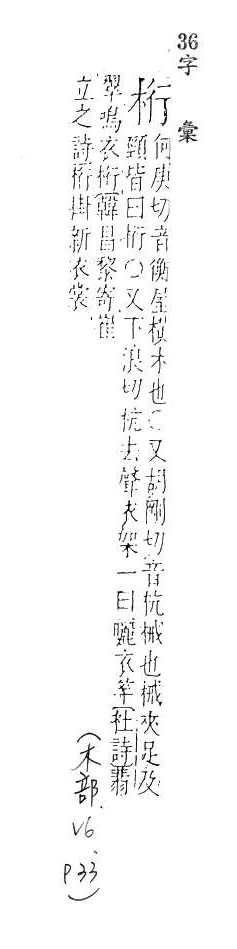 36字 彙
桁 何庚切音衡屋橫木也○又胡剛切音杭械也械夾足及
頸皆曰桁○又下浪切杭去聲衣架一曰曬衣竿杜詩翡
翠鳴衣桁韓昌黎寄崔
立之詩桁掛新衣裳
(木部
V6
P33)